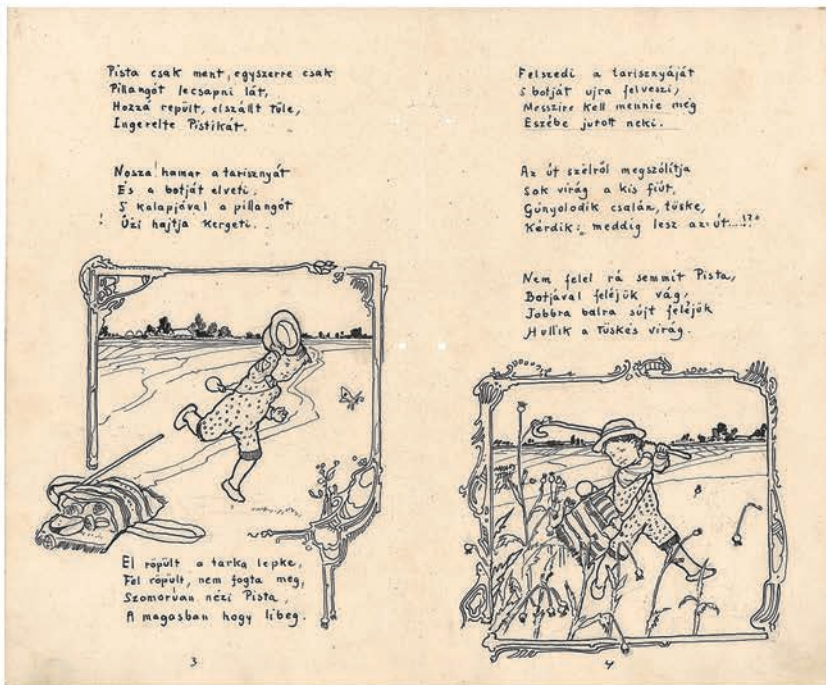 Pista csak ment, egyszerre csak
Pillangót lecsapni lát,
Hozzá repült, elszállt tőle,
Ingerelte Pistikát.
Nosza! hamar a tarisznyát
És a botját elveti,
S kalapjával a pillangót
Űzi hajtja kergeti..
El röpült a tarka lepke,
Fel röpült, nem fogta meg,
Szomorúan nézi Pista,
A magasban hogy libeg.
3
Felszedi a tarisznyáját
S botját ujra felveszi,
Messzire kell mennie még
Eszébe jutott neki.
Az út szélről megszólítja
Sok virág a kis fiút,
Gúnyolodik csalán, tüske,
Kérdik: „meddig lesz az út....!?"
Nem felel rá semmit Pista,
Botjával feléjük vág,
Jobbra balra sújt feléjük
Hullik a tüskés virág.
4